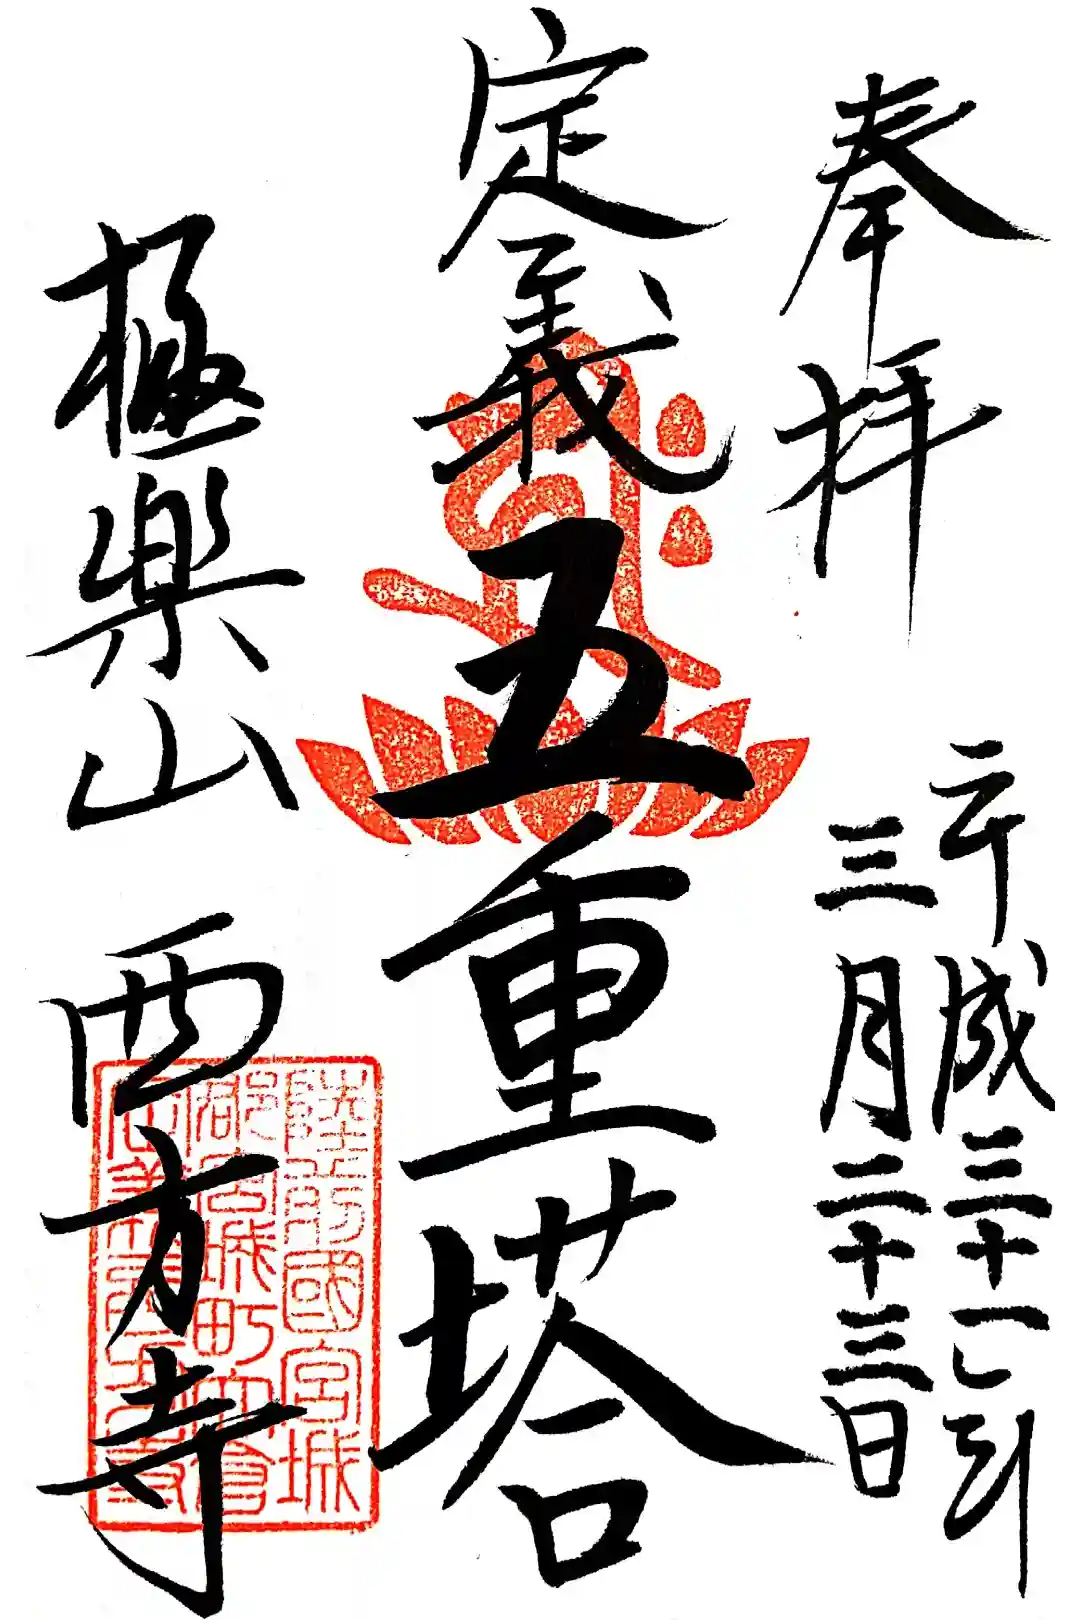 奉拝
平成三十一年
三月二十三日
定義
五重塔
極楽山
西方寺
陸前國宮城
郡宮城町大倉